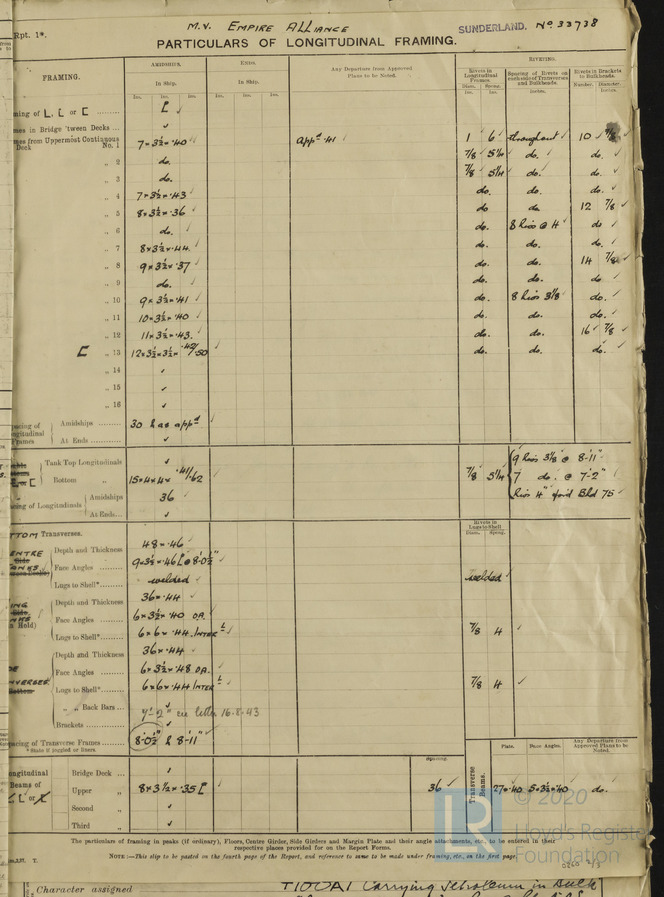 Rpt. 1*.
M.V. EMPIRE ALLIANCE
SUNDERLAND. No 33738
PARTICULARS OF LONGITUDINAL FRAMING.
FRAMING.
AMIDSHIPS.
ENDS.
Any Departure from Approved Plans to be Noted.
RIVETING.
In Ship.
In Ship.
Rivets in Longitudinal Frames.
Rivets in Brackets to Bulkheads.
Ins. Ins. Ins. Ins. Ins. Ins. Diam. Spcng. Inches. Number. Diameter Inches.
[ ✓
Bridge 'tween Decks ... ✓
from Uppermost Continuous Deck No. 1 7 × 3½ × .40 ✓ appd .41 ✓ 1 6 throughout ✓ 10 7/8
„ 2 do. 7/8 5¼ do. ✓ do. ✓
„ 3 do. 7/8 5¼ do. do. ✓
„ 4 7 × 3½ × .43 ✓ do. do. ✓ do. ✓
„ 5 8 × 3½ × .36 ✓ do do 12 7/8 ✓
„ 6 do. ✓ do. 8 @ 4 ✓ do ✓
„ 7 8 × 3½ × .44 ✓ do. do. do. ✓
„ 8 9 × 3½ × .37 ✓ do. do. 14 7/8 ✓
„ 9 do. ✓ do. do. do. ✓
„ 10 9 × 3½ × .41 ✓ do. 8 3⅛ ✓ do. ✓
„ 11 10 × 3½ × .40 ✓ do. do. do. ✓
„ 12 11 × 3½ × .43. ✓ do. do. 16 7/8 ✓
[ „ 13 12 × 3½ × 3½ × .42/.50 ✓ do. do. do. ✓
„ 14 ✓
„ 15 ✓
„ 16 ✓
Amidships 30 & as appd ✓
Frames At Ends ✓
Tank Top Longitudinals ✓
Bottom „ 15 × 4 × 4 × .41/.62 ✓ 7/8 5¼
9 3⅛ @ 8'-11"
7 do. @ 7'-2"
4" Bhd 75
of Longitudinals
Amidships 36 ✓
At Ends ✓
Transverses.
Rivets in Lugs to Shell
Diam. Spcng.
Depth and Thickness 48 × .46 ✓
Face Angles 9 × 3½ × .46 [ @ 8'-0½" ✓
Lugs to Shell* welded ✓ welded ✓
Depth and Thickness 36 × .44
Face Angles 6 × 3½ × .40 OA. ✓
Lugs to Shell* 6 × 6 × .44 INTER ✓ 7/8 4 ✓
Depth and Thickness 36 × .44 ✓
Face Angles 6 × 3½ × .48 OA. ✓
Lugs to Shell* 6 × 6 × .44 INTER ✓ 7/8 4 ✓
„ „ Back Bars ✓
Brackets 7'-2" letter 16-8-43
Spacing of Transverse Frames 8'-0½" & 8'-11" ✓
*State if joggled or liners.
Spacing.
Transverse Beams.
Plate. Face Angles. Any Departure from Approved Plans to be Noted.
Longitudinal Beams of
Bridge Deck ... ✓
Upper „ 8 × 3½ × .35 [ ✓ 36 ✓ 27 × .40 5 × 3½ × .40 ✓ do. ✓
Second „ ✓
Third „ ✓
The particulars of framing in peaks (if ordinary), Floors, Centre Girder, Side Girders and Margin Plate and their angle attachments, etc., to be entered in their
respective places provided for on the Report Forms.
NOTE :—This slip to be pasted on the fourth page of the Report, and reference to same to be made under framing, etc., on the first page.
© 2020
Lloyd's Register
Foundation
Character assigned
*100A1 Carrying Petroleum in Bulk